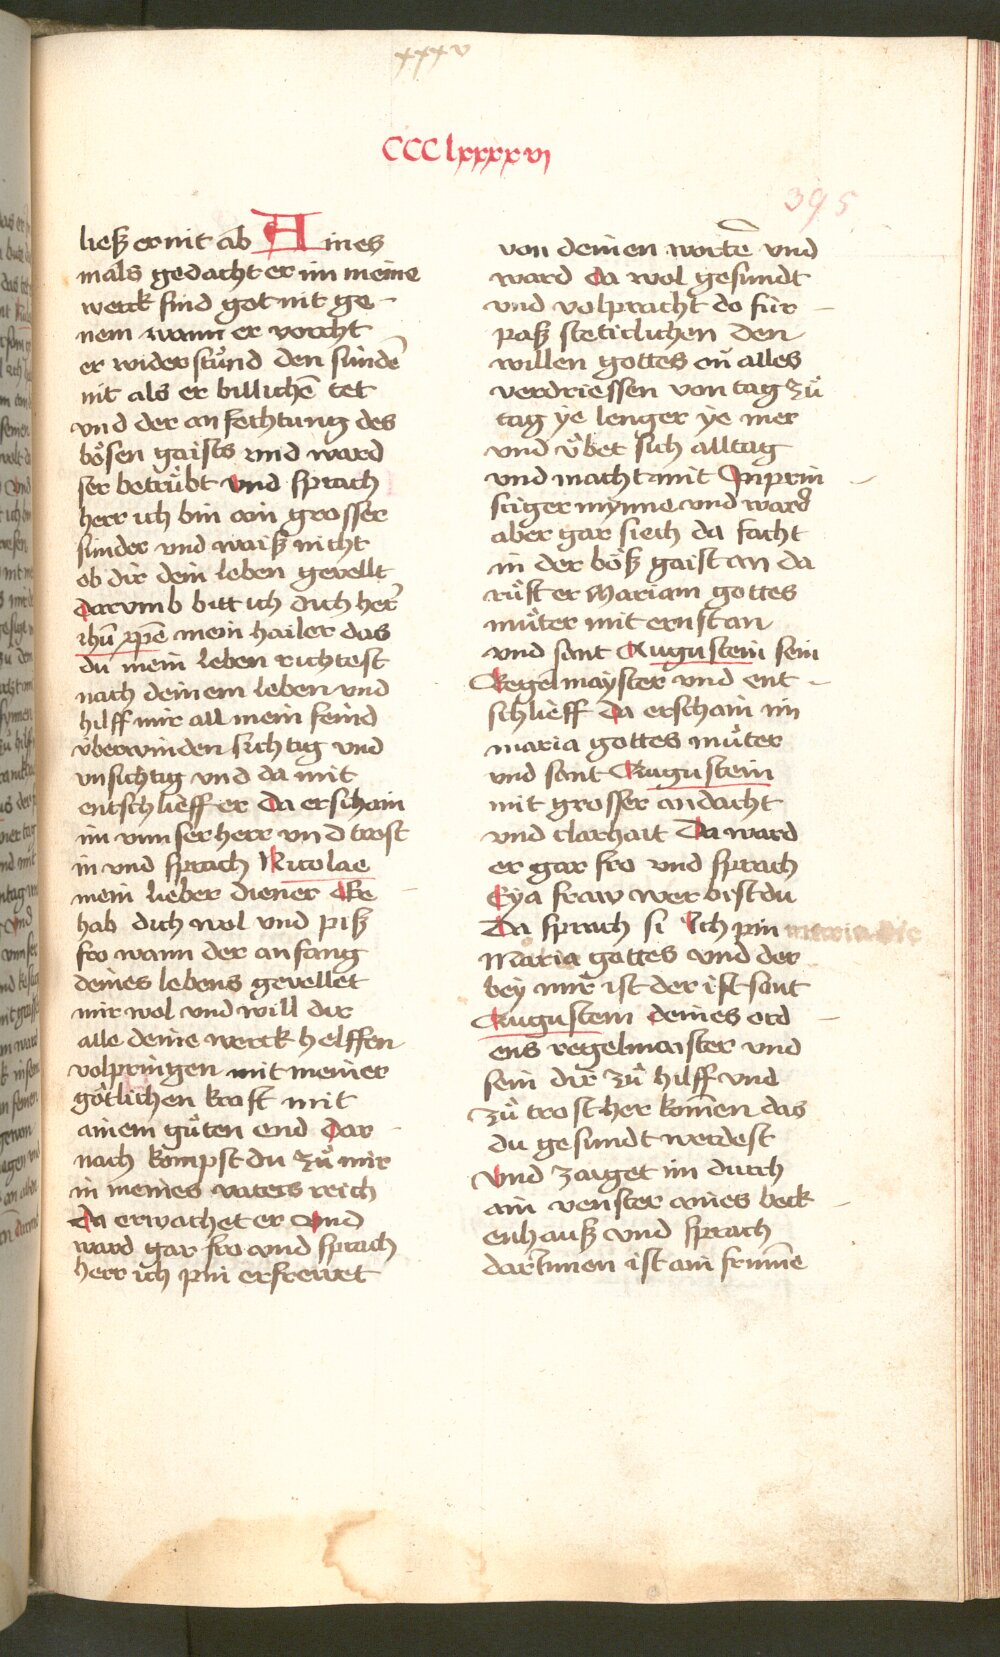 xxxv
CCClxxxxvj
395
ließ er nit ab Aines
mals gedacht er im meine
werck sind got nit ge-
nem wann er vorcht
er widerstůnd den sündē
nit als er billichē tet
vnd der anfechtung des
bösen gaists vnd ward
ser betrübt vnd sprach
herr ich bin ain grosser
sünder vnd waiß nicht
ob dir dein leben gevellt
Darvmb bitt ich dich her̄
ihū xpē mein hailer das
du mein leben richtest
nach deinem leben vnd
hilff mir all mein feind
vberwinden sichtig vnd
vnsichtig vnd da mit
entschlieff er Da erschain
im vnnser herr vnd trost
in vnd sprach Nicolae
mein lieber diener Ge
hab dich wol vnd piß
fro wann der anfang
deines lebens gevellet
mir wol vnd will dir
alle deine werck helffen
volpringen mit meiner
götlichen kraft mit
ainem gůten end Dar
nach kompst du zů mir
in meines vaters reich
Da erwachet er vnd
ward gar fro vnd sprach
herr ich pin erfrewet
von deinen wortē vnd
ward Da wol gesundt
vnd volpracht do für
paß steticlichen den
willen gottes on̄ alles
verdriessen von tag zů
tag ye lenger ye mer
vnd v̈bet sich alltag
vnd nacht mit Jnprin
stiger mynne vnd ward
aber gar siech da facht
in der böß gaist an da
rüft er Mariam gottes
můter mit ernst an
vnd sant Augustein sein
Regelmayster vnd ent-
schlieff Da erschain im
maria gottes můter
vnd sant Augustein
mit grosser andacht
vnd clarhait Da ward
er gar fro vnd sprach
Eya fraw wer bist du
Da sprach si Ich pin
Maria gottes vnd der
bey mir ist der ist sant
Augustein deines ord
ens regelmaister vnd
sein dir zů hilff vnd
zů trost her komen das
du gesundt werdest
vnd zaiget im durch
ain venster aines beck
enhauß vnd sprach
darinnen ist ain frum̄e